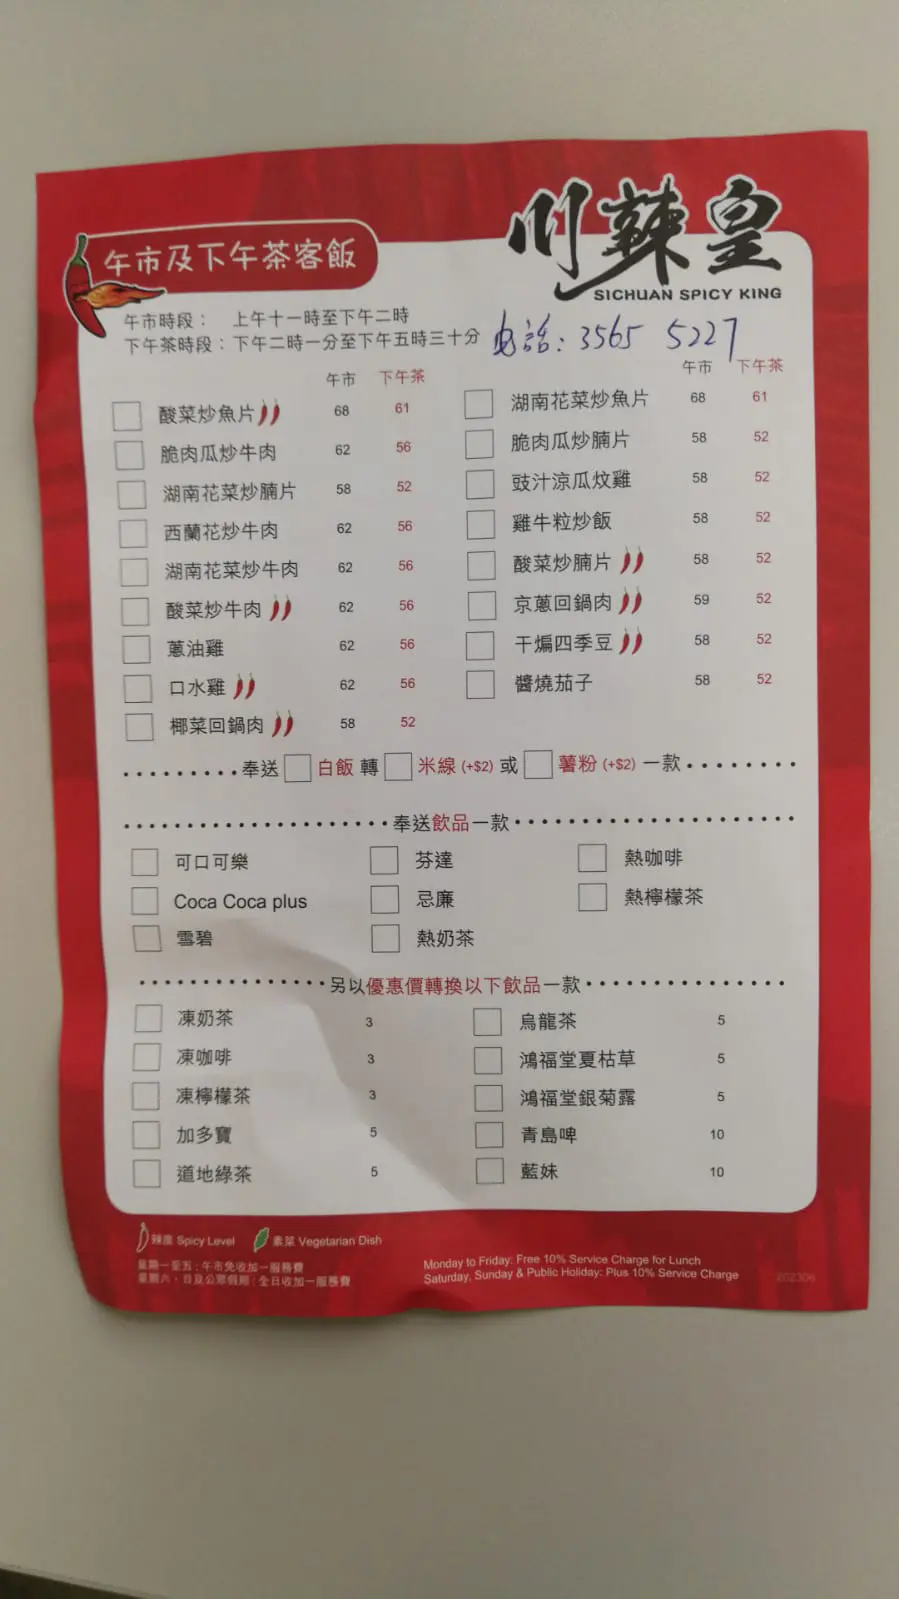 川辣皇
SICHUAN SPICY KING
午市及下午茶客飯
午市時段： 上午十一時至下午二時
下午茶時段：下午二時一分至下午五時三十分
电話: 3565 5227
午市 下午茶
酸菜炒魚片 68 61
脆肉瓜炒牛肉 62 56
湖南花菜炒腩片 58 52
西蘭花炒牛肉 62 56
湖南花菜炒牛肉 62 56
酸菜炒牛肉 62 56
蔥油雞 62 56
口水雞 62 56
椰菜回鍋肉 58 52
午市 下午茶
湖南花菜炒魚片 68 61
脆肉瓜炒腩片 58 52
豉汁涼瓜炆雞 58 52
雞牛粒炒飯 58 52
酸菜炒腩片 58 52
京蔥回鍋肉 59 52
干煸四季豆 58 52
醬燒茄子 58 52
奉送 白飯 轉 米線 (+$2) 或 薯粉 (+$2) 一款
奉送飲品一款
可口可樂 芬達 熱咖啡
Coca Coca plus 忌廉 熱檸檬茶
雪碧 熱奶茶
另以優惠價轉換以下飲品一款
凍奶茶 3 烏龍茶 5
凍咖啡 3 鴻福堂夏枯草 5
凍檸檬茶 3 鴻福堂銀菊露 5
加多寶 5 青島啤 10
道地綠茶 5 藍妹 10
辣度 Spicy Level 素菜 Vegetarian Dish
星期一至五 : 午市免收加一服務費
星期六、日及公眾假期 : 全日收加一服務費
Monday to Friday: Free 10% Service Charge for Lunch
Saturday, Sunday & Public Holiday: Plus 10% Service Charge
202306